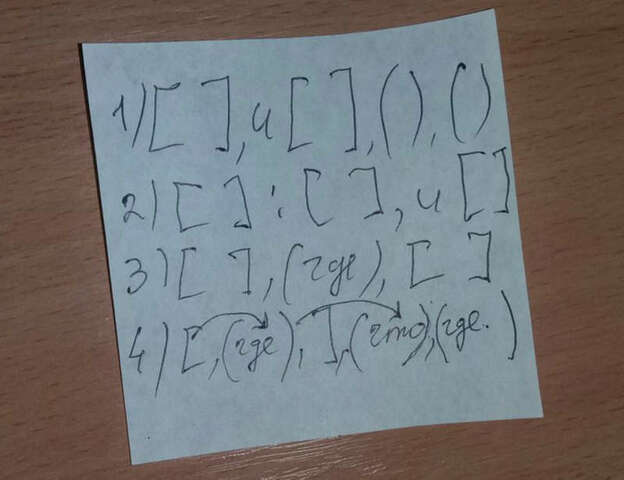 1) [ ], и [ ], ( ), ( )
2) [ ] : [ ], и [ ]
3) [ ], (где), [ ]
4) [ , (где), ], (что), (где. )